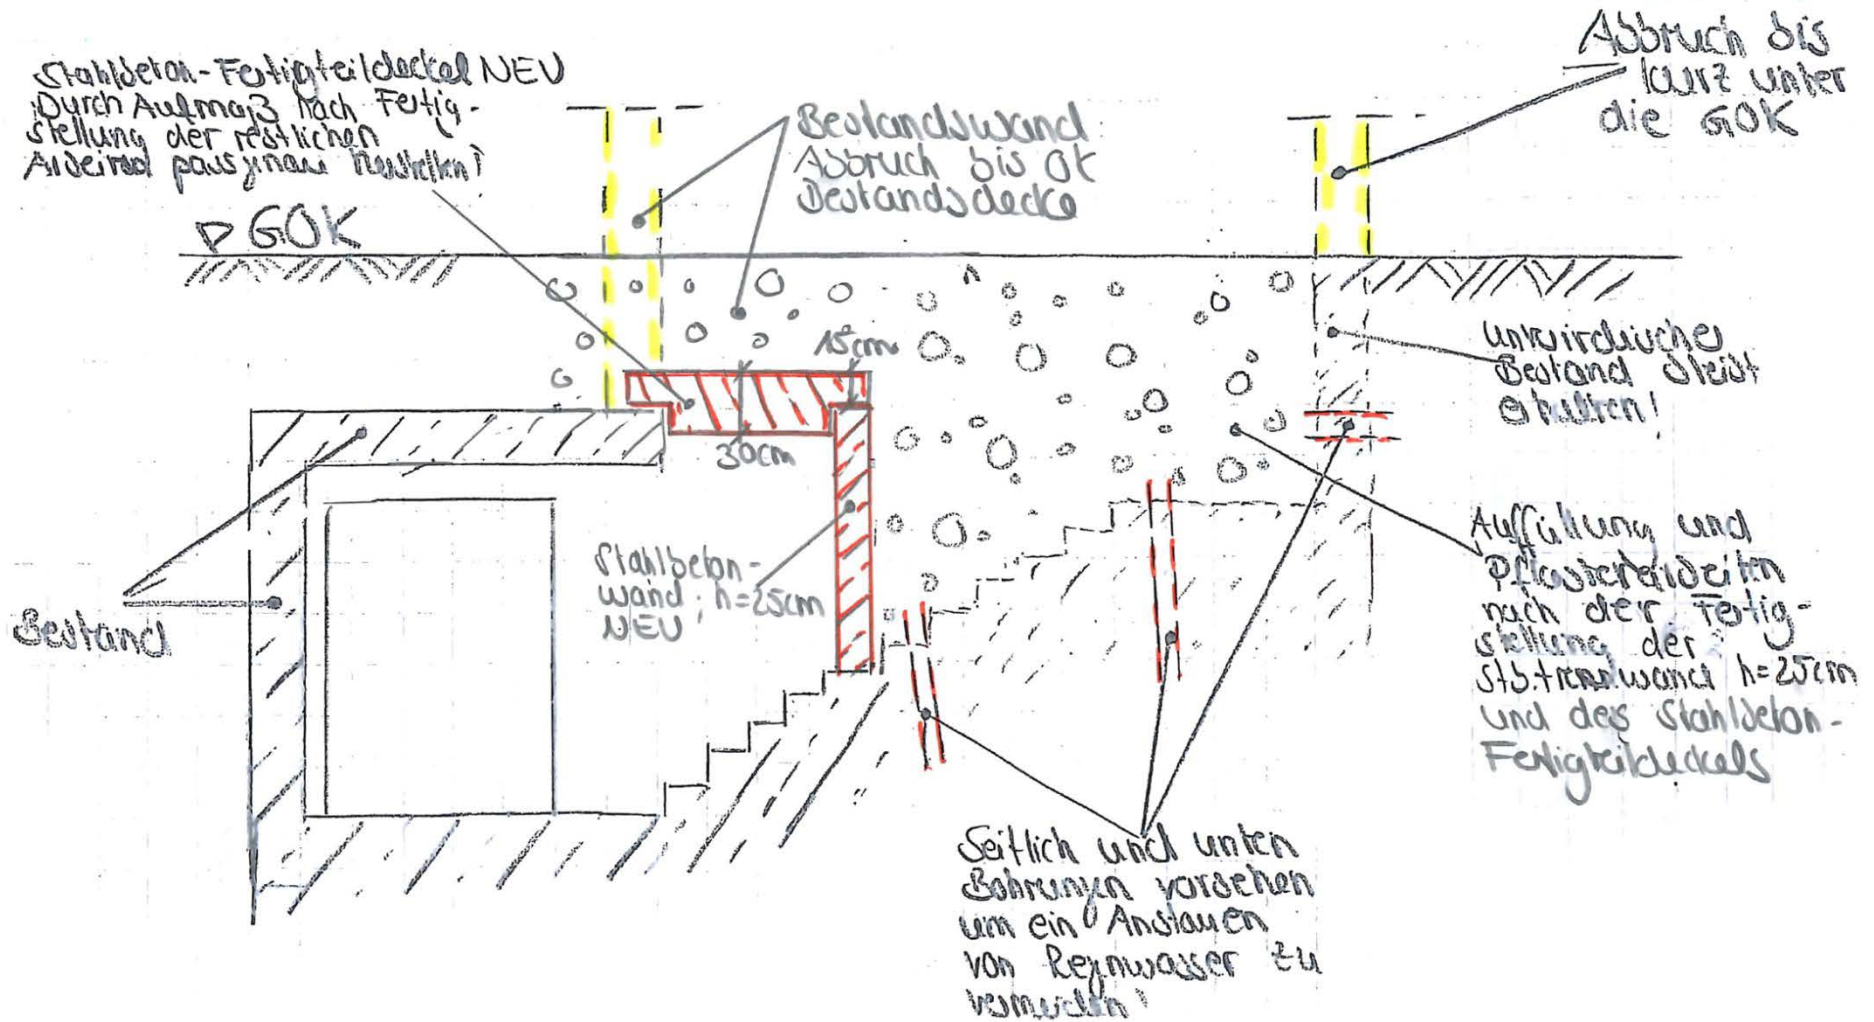 Stahlbeton-Fertigteildeckel NEU
Durch Aufmaß nach Fertig-
stellung der restlichen
Arbeiten passgenau herstellen!
▷ GOK
Bestandswand
Abbruch bis OK
Bestandsdecke
Abbruch bis
kurz unter
die GOK
15cm
30cm
Unterirdischer
Bestand bleibt
erhalten!
Stahlbeton-
wand; h=25cm
NEU
Bestand
Auffüllung und
Pflasterarbeiten
nach der Fertig-
stellung der
Stb.trennwand h=25cm
und des Stahlbeton-
Fertigteildeckels
Seitlich und unten
Bohrungen vorsehen
um ein Anstauen
von Regenwasser zu
vermeiden!